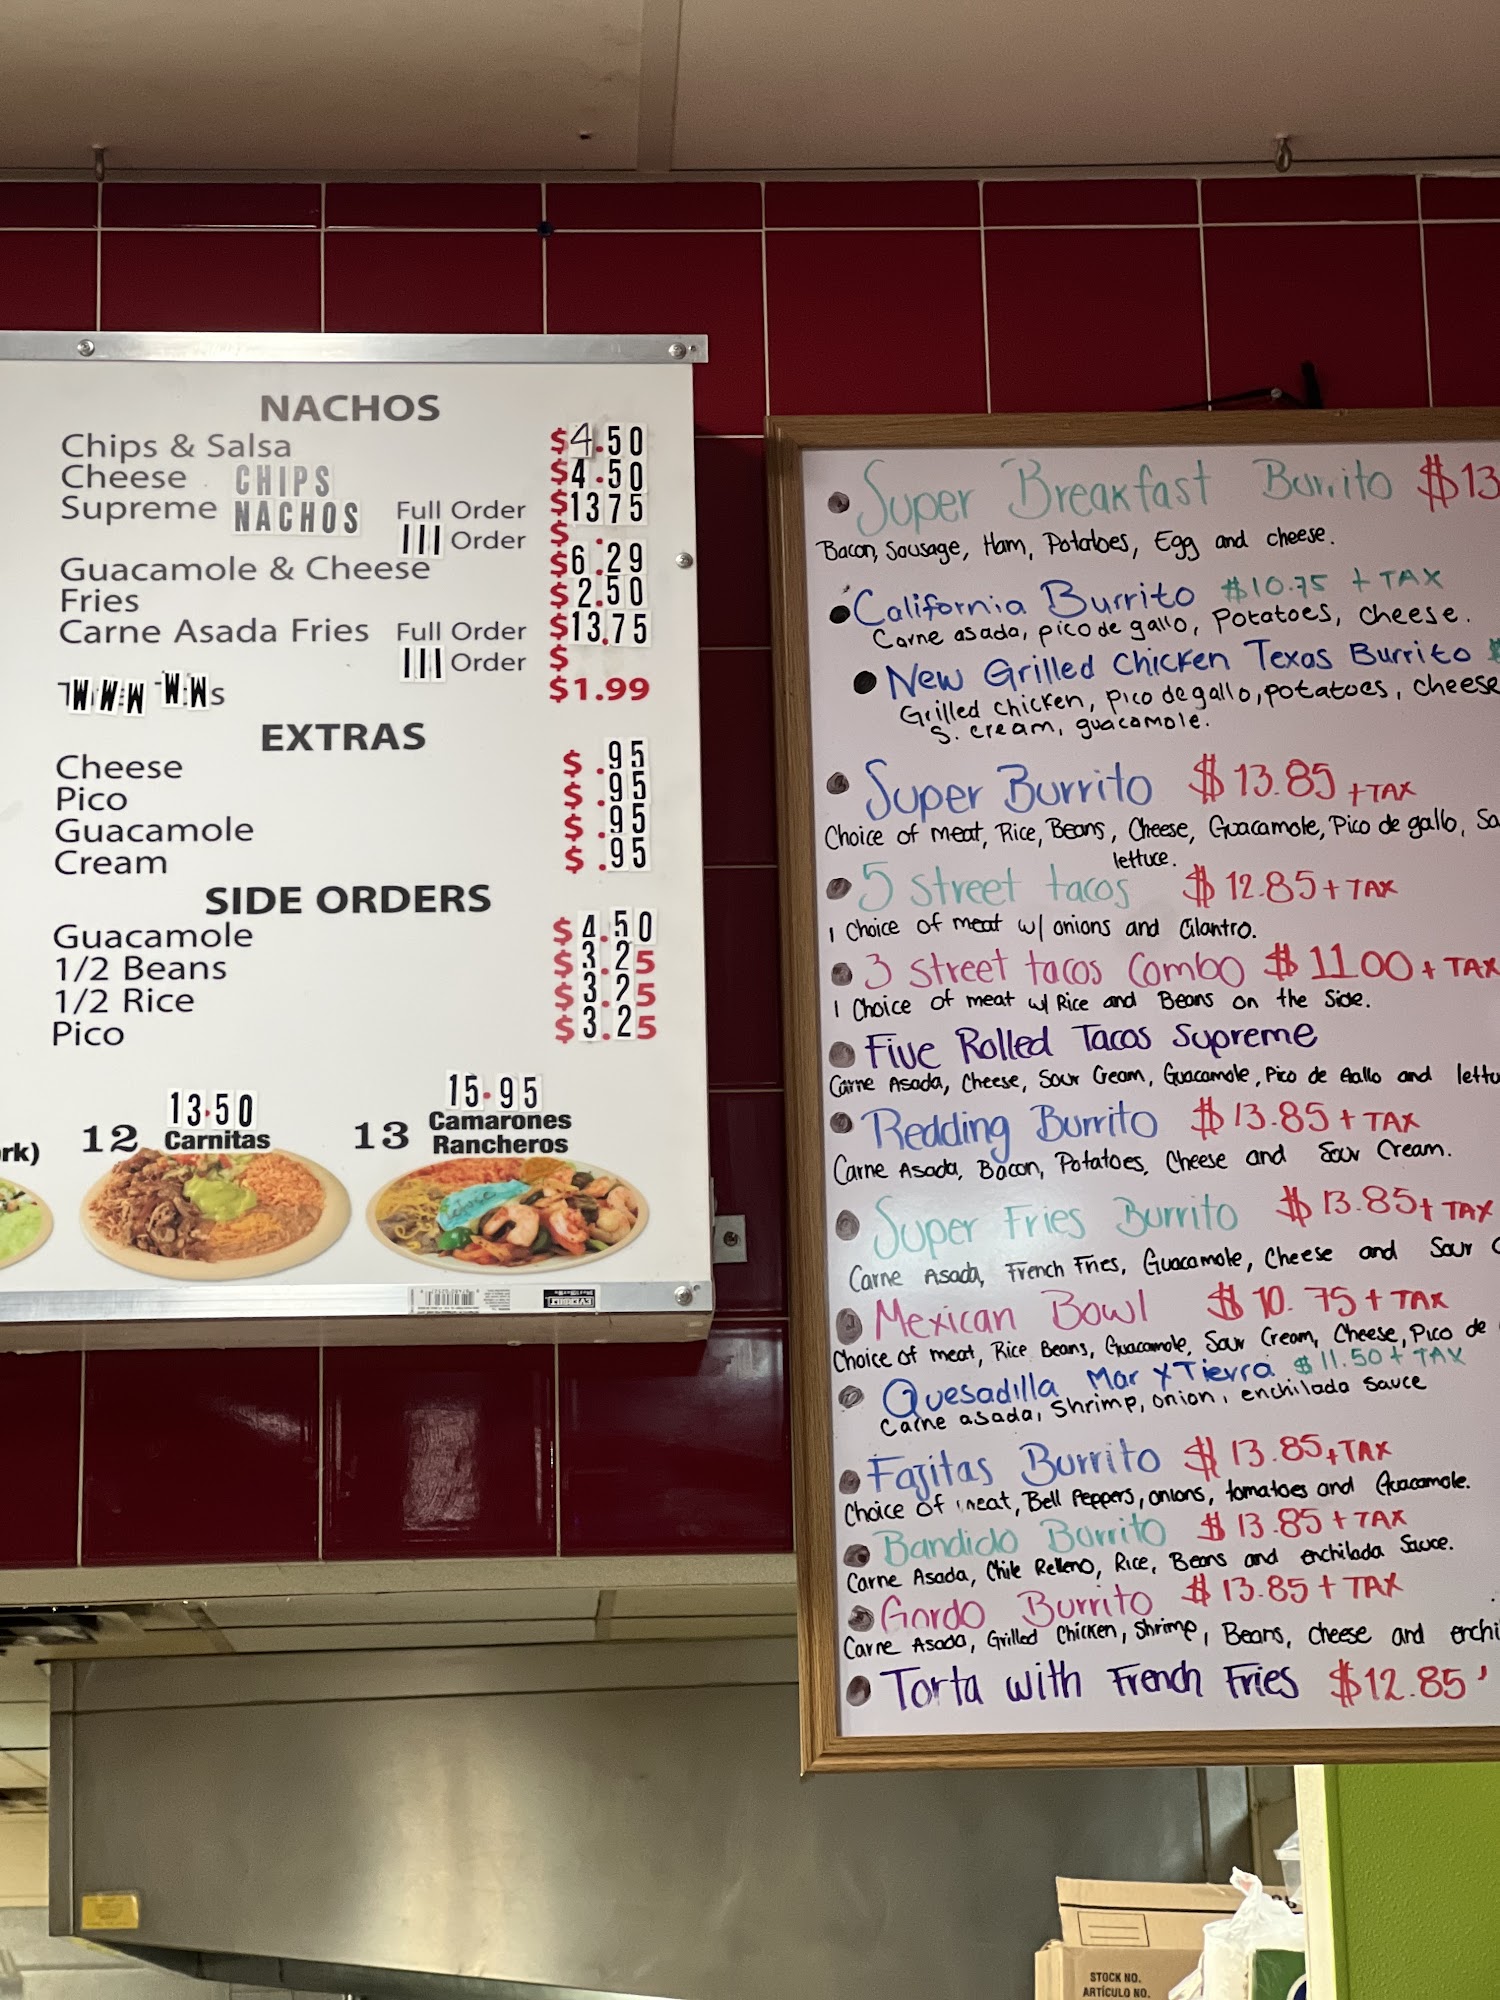 NACHOS
Chips & Salsa $4.50
Cheese CHIPS $4.50
Supreme NACHOS Full Order $13 75
Order $ .
Guacamole & Cheese $6.29
Fries $2.50
Carne Asada Fries Full Order $13.75
Order $
$1.99
EXTRAS
Cheese $ .95
Pico $ .95
Guacamole $ .95
Cream $ .95
SIDE ORDERS
Guacamole $4.50
1/2 Beans $3.25
1/2 Rice $3.25
Pico $3.25
rk)
12 13.50 Carnitas
13 15.95 Camarones
Rancheros
EVERBILT
Super Breakfast Burrito $13
Bacon, Sausage, Ham, Potatoes, Egg and cheese.
California Burrito $10.75 + TAX
Carne asada, pico de gallo, potatoes, cheese.
New Grilled Chicken Texas Burrito $
Grilled chicken, pico de gallo, potatoes, cheese
S. cream, guacamole.
Super Burrito $13.85 + TAX
Choice of meat, Rice, Beans, Cheese, Guacamole, Pico de gallo, Sa
lettuce.
5 street tacos $12.85 + TAX
1 Choice of meat w/ onions and Cilantro.
3 street tacos Combo $11.00 + TAX
1 Choice of meat w/ Rice and Beans on the Side.
Five Rolled Tacos Supreme
Carne Asada, Cheese, Sour Cream, Guacamole, Pico de Gallo and lettu
Redding Burrito $13.85 + TAX
Carne Asada, Bacon, Potatoes, Cheese and Sour Cream.
Super Fries Burrito $13.85 + TAX
Carne Asada, French Fries, Guacamole, Cheese and Sour C
Mexican Bowl $10.75 + TAX
Choice of meat, Rice Beans, Guacamole, Sour Cream, Cheese, Pico de
Quesadilla Mar Y Tierra $11.50 + TAX
Carne asada, Shrimp, onion, enchilada sauce
Fajitas Burrito $13.85 + TAX
Choice of meat, Bell Peppers, onions, tomatoes and Guacamole.
Bandido Burrito $13.85 + TAX
Carne Asada, Chile Relleno, Rice, Beans and enchilada Sauce.
Gordo Burrito $13.85 + TAX
Carne Asada, Grilled Chicken, Shrimp, Beans, cheese and enchi
Torta with French Fries $12.85
STOCK NO.
ARTÍCULO NO.